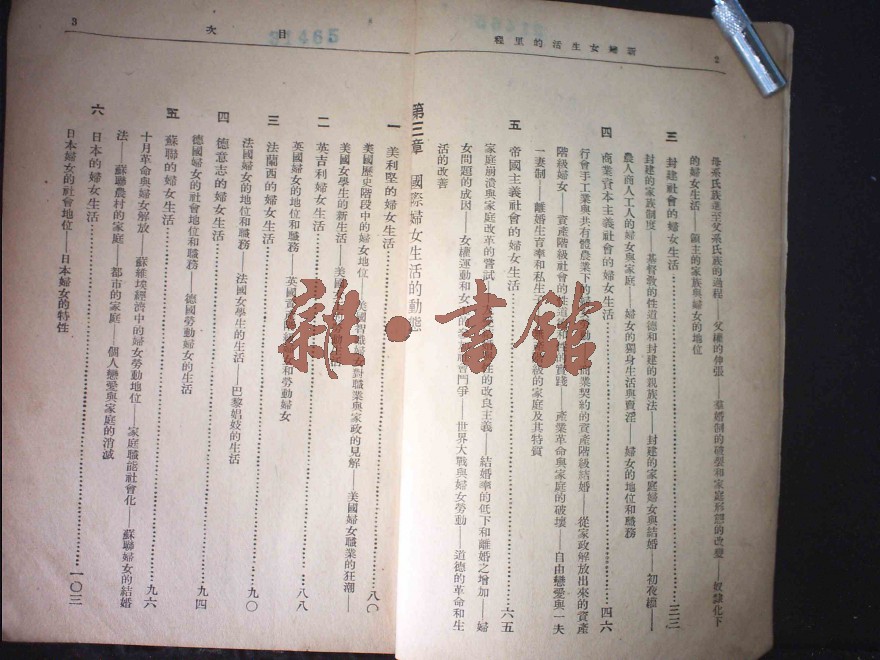 2
新婦女生活的里程
母系氏族進至父系氏族的過程——父權的伸張——羣婚制的破裂和家庭形態的改變——奴隸化下
的婦女生活——領主的家族與婦女的地位
三 封建社會的婦女生活…………三三
封建的家族制度——基督教的性道德和封建的親族法——封建的家庭婦女與結婚——初夜權——
農人商人工人的婦女與家庭——婦女的獨身生活與賣淫——婦女的地位和職務
四 商業資本主義社會的婦女生活…………四六
行會手工業與共有體農業下的 商業契約的資產階級結婚——從家政解放出來的資產
階級婦女——資產階級社會的性道德 的實踐——產業革命與家庭的破壞——自由戀愛與一夫
一妻制——離婚生育率和私生子 級的家庭及其特質
五 帝國主義社會的婦女生活…………六五
家庭崩潰與家庭改革的嘗試 性的改良主義——結婚率的低下和離婚之增加——婦
女問題的成因——女權運動和女 社會鬥爭——世界大戰與婦女勞動——道德的革命和生
活的改善
第三章 國際婦女生活的動態
一 美利堅的婦女生活…………八〇
美國歷史階段中的婦女地位——美國智識婦女對職業與家政的見解——美國婦女職業的狂潮——
美國女學生的新生活——美國
二 英吉利婦女生活…………八八
英國婦女的地位和職務——英國資產 婦女和勞動婦女
三 法蘭西的婦女生活…………九〇
法國婦女的地位和職務——法國女學生的生活——巴黎娼妓的生活
四 德意志的婦女生活…………九四
德國婦女的社會地位和職務——德國勞動婦女的生活
五 蘇聯的婦女生活…………九六
十月革命與婦女解放——蘇維埃經濟中的婦女勞動地位——家庭職能社會化——蘇聯婦女的結婚
法——蘇聯農村的家庭——都市的家庭——個人戀愛與家庭的消滅
六 日本的婦女生活…………一〇三
日本婦女的社會地位——日本婦女的特性
目次
3
31465
雜·書館